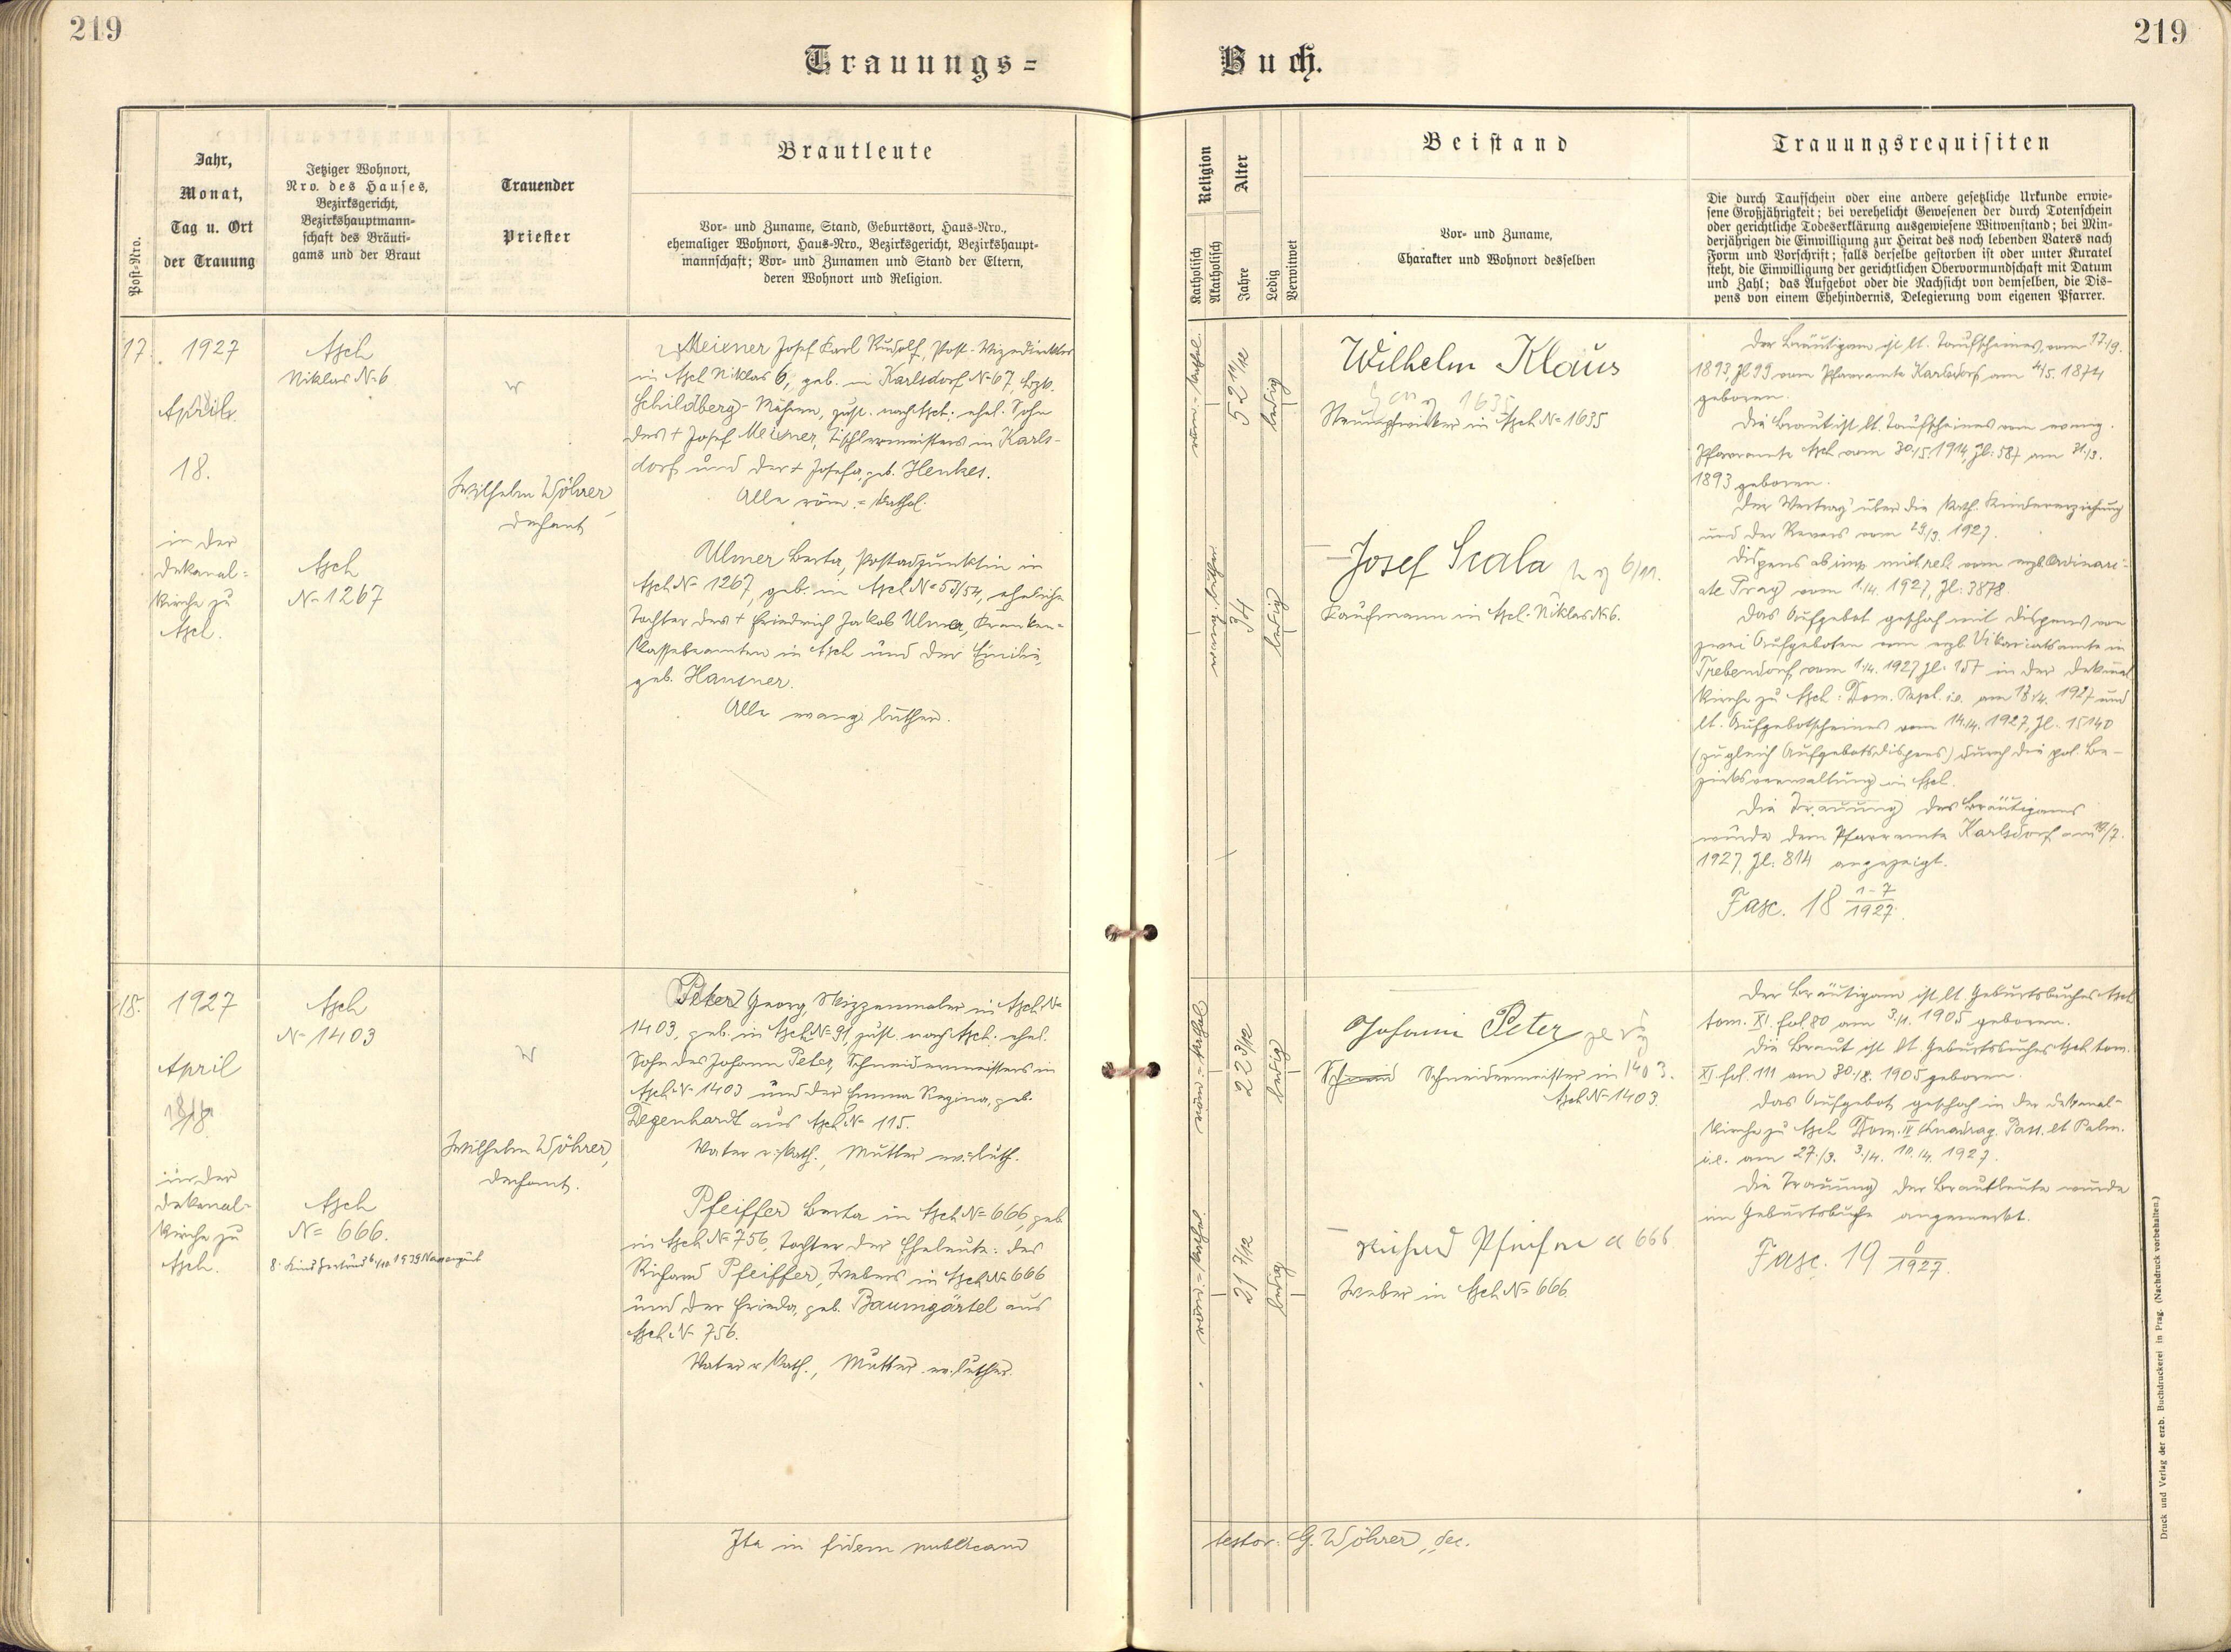 219
219
Trauungs=
Buch.
Post-Nro.
Jahr,
Monat,
Tag u. Ort
der Trauung
Jetziger Wohnort,
Nro. des Hauses,
Bezirksgericht,
Bezirkshauptmann-
schaft des Bräuti-
gams und der Braut
Trauender
Priester
Brautleute
Vor- und Zuname, Stand, Geburtsort, Haus-Nro.,
ehemaliger Wohnort, Haus-Nro., Bezirksgericht, Bezirkshaupt-
mannschaft; Vor- und Zunamen und Stand der Eltern,
deren Wohnort und Religion.
Religion
Katholisch
Akatholisch
Alter
Jahre
Ledig
Verwitwet
Beistand
Vor- und Zuname,
Charakter und Wohnort desselben
Trauungsrequisiten
Die durch Taufschein oder eine andere gesetzliche Urkunde erwie-
sene Großjährigkeit; bei verehelicht Gewesenen der durch Totenschein
oder gerichtliche Todeserklärung ausgewiesene Witwenstand; bei Min-
derjährigen die Einwilligung zur Heirat des noch lebenden Vaters nach
Form und Vorschrift; falls derselbe gestorben ist oder unter Kuratel
steht, die Einwilligung der gerichtlichen Obervormundschaft mit Datum
und Zahl; das Aufgebot oder die Nachsicht von demselben, die Dis-
pens von einem Ehehindernis, Delegierung vom eigenen Pfarrer.
17.
1927
April
18.
in der
Dekanal=
kirche zu
Asch.
Asch
Niklas N= 6
Asch
N= 1267
Wilhelm Wöhrer,
Dechant
Meixner Josef Karl Rudolf, Post-Vizedirektor
in Asch Niklas 6, geb. in Karlsdorf N= 67, Bzk.
Schildberg-Mähren, zust. nach Asch, ehel. Sohn
des + Josef Meixner, Tischlermeisters in Karls-
dorf und der + Josefa, geb. Henkes.
Alle röm.=kathol.
Ulmer Berta, Postadjunktin in
Asch N= 1267, geb. in Asch N= 53/54, eheliche
Tochter des + Friedrich Jakob Ulmer, Kranken=
kassebeamten in Asch und der Emilie,
geb. Hausner.
Alle evang. luther.
röm.=kathol.
52 11/12
ledig
evang. luther.
34
ledig
Wilhelm Klaus
Strumpfwirker in Asch N= 1635
Josef Scala
Kaufmann in Asch-Niklas N= 6.
Der Bräutigam ist lt. Taufscheines vom 17./9.
1893, Zl 99 vom Pfarramte Karlsdorf am 4/5. 1874
geboren.
Die Braut ist lt. Taufscheines vom evang.
Pfarramte Asch vom 30./5. 1914, Zl: 587 am 31./3.
1893 geboren.
Der Vertrag über die kath. Kindererziehung
und der Revers vom 29/3. 1927.
Dispens ab imp. mixt. rel. vom erzb. Ordinari-
ate Prag vom 1./4. 1927, Zl: 3878.
Das Aufgebot geschah mit Dispens von
zwei Aufgeboten vom erzb. Vikariatsamte in
Trebendorf vom 1./4. 1927 Zl: 157 in der Dekanal
kirche zu Asch: Dom. i.e. am 1927 und
lt. Aufgebotscheines vom 14./4. 1927, Zl: 15140
(zugleich Aufgebotsdispens) durch die pol. Be-
zirksverwaltung in Asch.
Die Trauung des Bräutigams
wurde dem Pfarramte Karlsdorf am 18/7.
1927, Zl: 814 angezeigt.
Fasc. 18 1-7/1927.
18.
1927
April
18/4.
in der
Dekanal-
kirche zu
Asch.
Asch
N= 1403
Asch
N= 666.
Wilhelm Wöhrer,
Dechant.
Peter Georg, Skizzenmaler in Asch N=
1403, geb. in Asch N= 91, zust. nach Asch, ehel.
Sohn des Johann Peter, Schneidermeisters in
Asch N= 1403 und der Emma Regina, geb.
Degenhardt aus Asch N= 115.
Vater r. kath., Mutter ev. luth.
Pfeiffer Berta in Asch N= 666, geb.
in Asch N= 756, Tochter der Eheleute: des
Richard Pfeiffer, Webers in Asch N= 666
und der Frieda, geb. Baumgärtel aus
Asch N= 756.
Vater r. kath., Mutter ev. luther.
röm.=kathol.
22 3/12
ledig
röm.=kathol.
21 7/12
ledig
Johann Peter
Schneidermeister in 1403.
Asch N= 1403.
Richard Pfeiffer 666
Weber in Asch N= 666.
Der Bräutigam ist lt. Geburtsbuches Asch
tom. XI. fol. 80 am 3./1. 1905 geboren.
Die Braut ist lt. Geburtsbuches Asch tom.
XI. fol. 111 am 30./8. 1905 geboren.
Das Aufgebot geschah in der Dekanal-
kirche zu Asch Dom. IV Quadrag. Pass. et Palm.
i.e. am 27./3. 3./4. 10./4. 1927.
Die Trauung der Brautleute wurde
im Geburtsbuche angemerkt.
Fasc. 19 0/1927.
Ita in fidem publicam
testor: G. Wöhrer, dec.
Druck und Verlag der erzb. Buchdruckerei in Prag. (Nachdruck vorbehalten.)